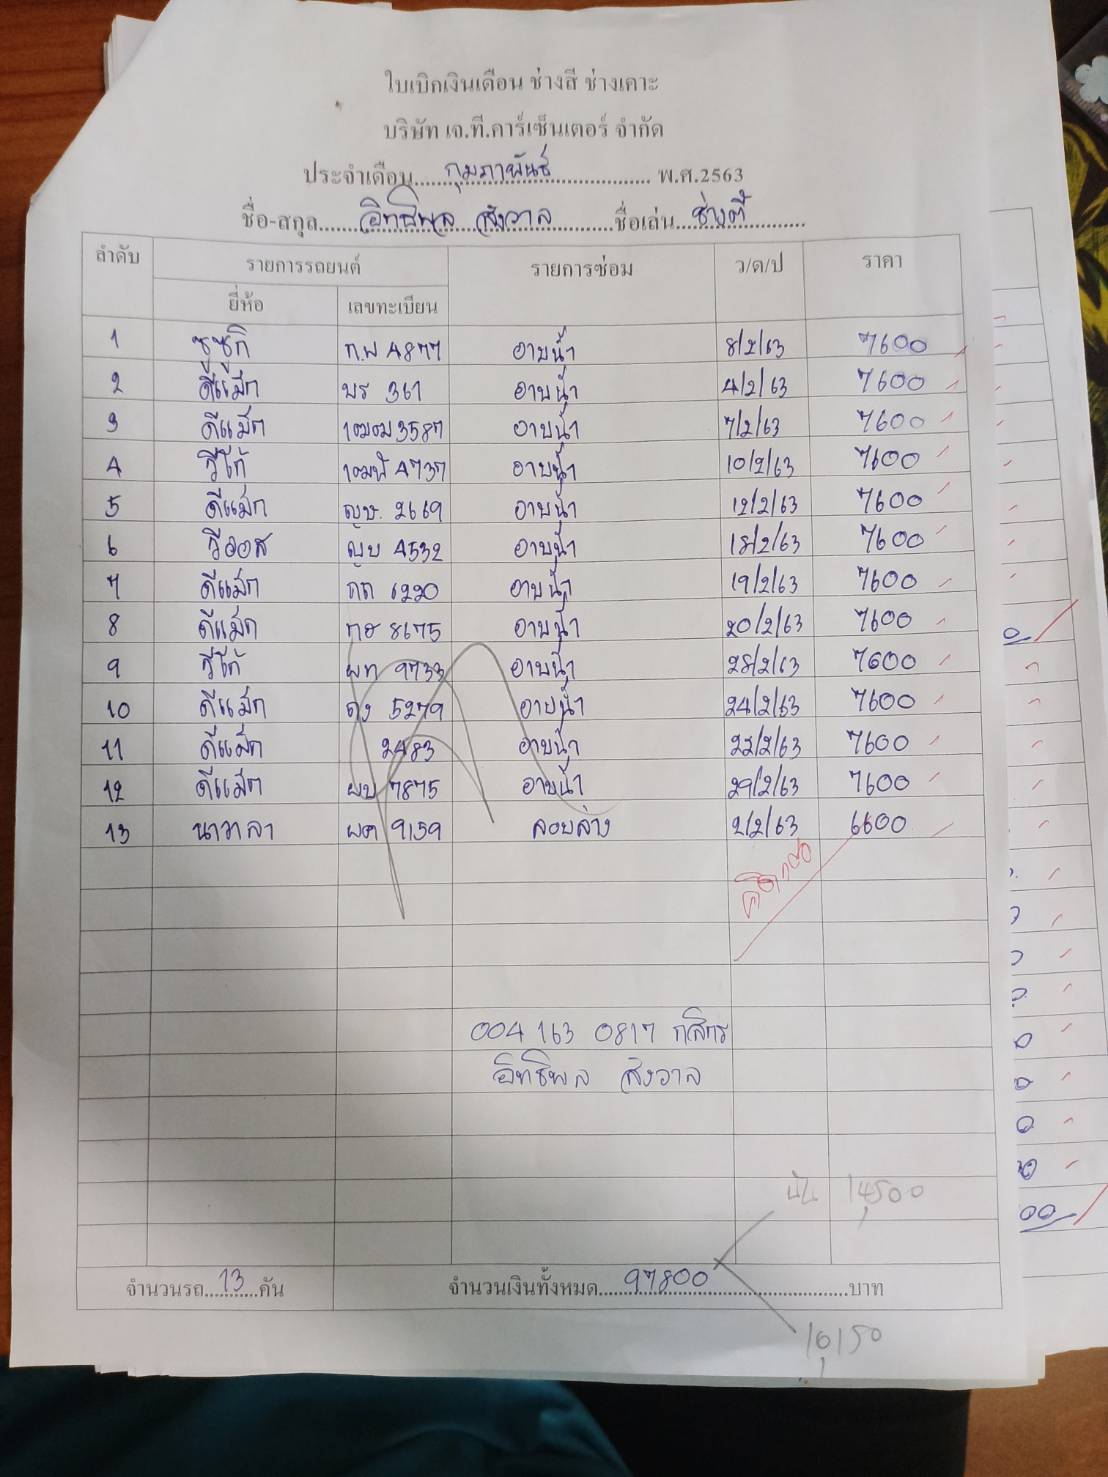 ใบเบิกเงินเดือน ช่างสี ช่างเคาะ
บริษัท เจ.ที.คาร์เซ็นเตอร์ จำกัด
ประจำเดือน กุมภาพันธ์ พ.ศ.2563
ชื่อ-สกุล อิทธิพล สังวาล ชื่อเล่น ช่างตี๋
ลำดับ รายการรถยนต์ รายการซ่อม ว/ด/ป ราคา
ยี่ห้อ เลขทะเบียน
1 ซูซูกิ ก.พ 4877 อาบน้ำ 8/2/63 7600
2 ดีแม็ก บร 361 อาบน้ำ 4/2/63 7600
3 ดีแม็ก 3587 อาบน้ำ 7/2/63 7600
4 วีโก้ 4737 อาบน้ำ 10/2/63 7600
5 ดีแม็ก 2669 อาบน้ำ 12/2/63 7600
6 วีออส 4532 อาบน้ำ 18/2/63 7600
7 ดีแม็ก 6220 อาบน้ำ 19/2/63 7600
8 ดีแม็ก 8675 อาบน้ำ 20/2/63 7600
9 วีโก้ ผท 9733 อาบน้ำ 28/2/63 7600
10 ดีแม็ก 5279 อาบน้ำ 24/2/63 7600
11 ดีแม็ก 2483 อาบน้ำ 22/2/63 7600
12 ดีแม็ก ผบ 7875 อาบน้ำ 29/2/63 7600
13 นาวาลา ผค 9159 ลอบล่าง 2/2/63 6600
004 163 0817 กสิกร
อิทธิพล สังวาล
14,500
จำนวนรถ 13 คัน จำนวนเงินทั้งหมด 97800 บาท
10,150